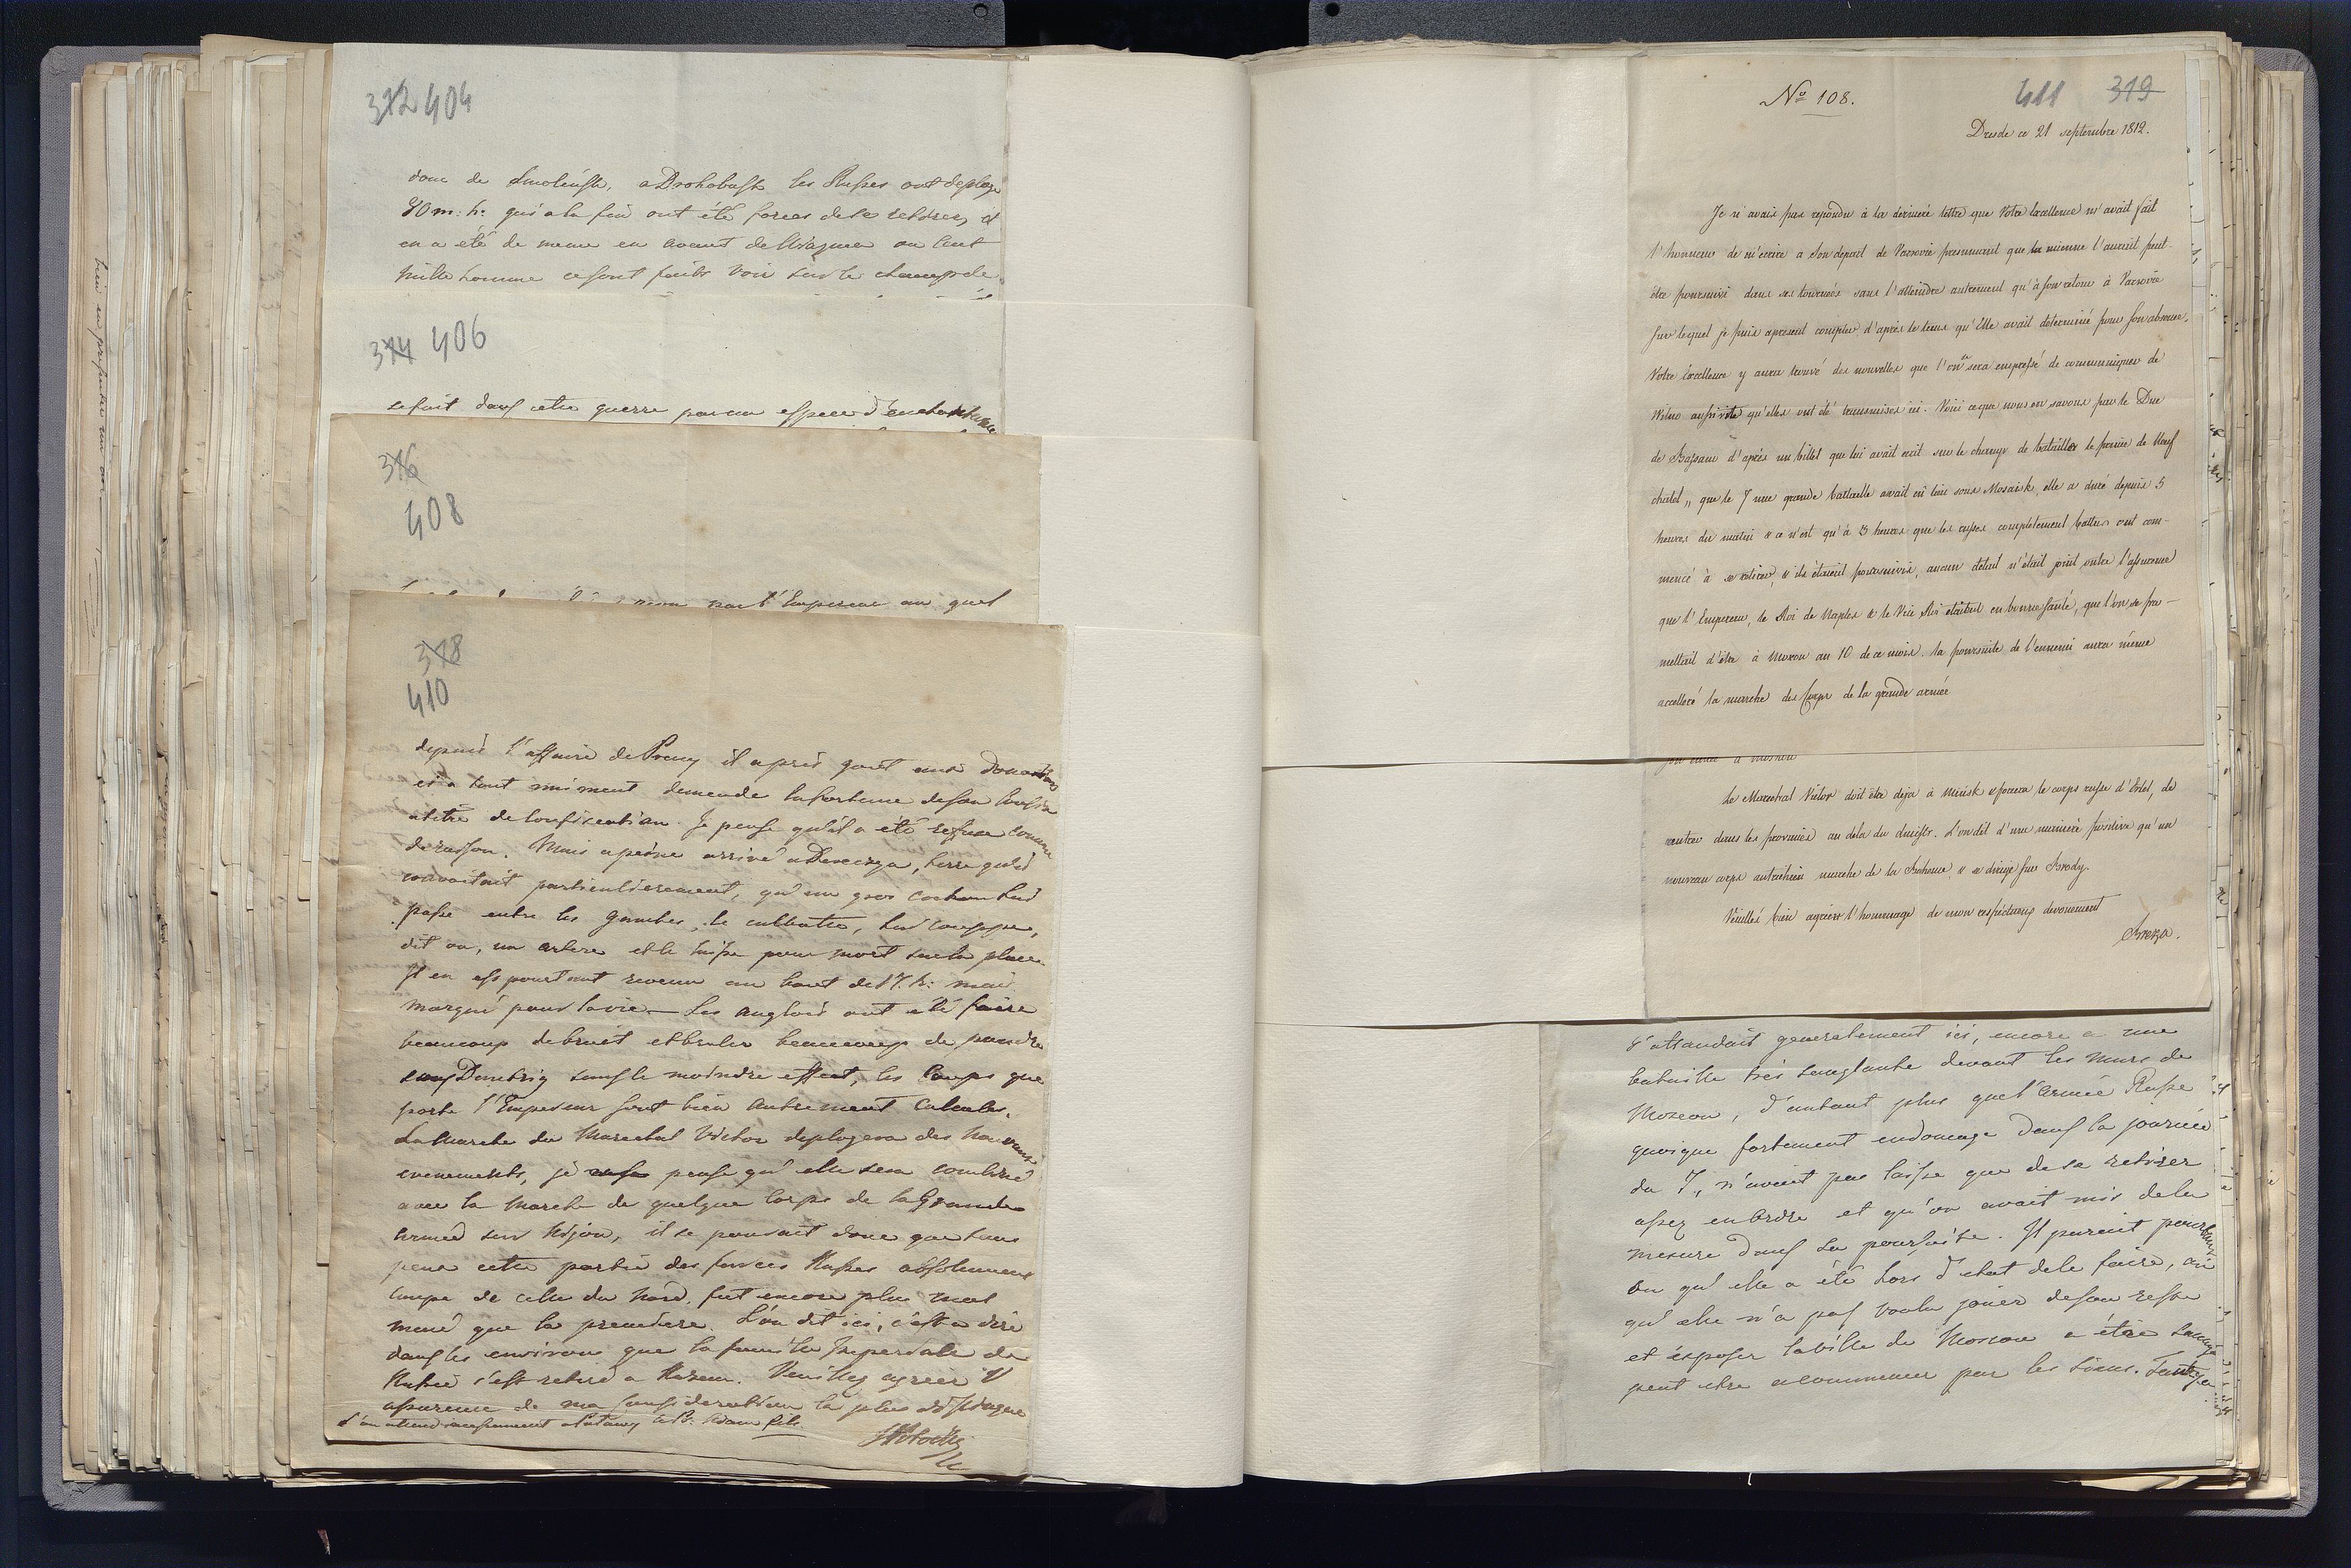 312 404
donc de Smolensk, a Drohobusk les Russes ont deploye
80 m: h: qui a la fin ont été forces de se retirer, il
en a été de meme en avant de Wiazma ou Cent
mille homme ce sont faits voir sur le champ de
314 406
se fait dans cette guerre par une espece d'enchantement
316
408
par l'Empereur au quel
318
410
depuis l'affaire de il a pris gout aux Donations
et a tout moment demende la fortune de son Cousin
a titre de Confiscation. Je pense qu'il a été refusé comme
de raison. Mais a peine arrivé a Dereczyn, terre qu'il
convoitait particulierement, qu'un gros cochon lui
passe entre les jambes, le culbutte, lui couppe,
dit on, un artere et le laisse pour mort sur la place
Il en est pourtant revenu au bout de 17. h: mais
marqué pour la vie. — Les Anglois ont été faire
beaucoup de bruit et bruler beaucoup de poudre
sous Dantzig sans le moindre effect, les Coups que
porte l'Empereur sont bien autrement Calculés.
La Marche du Marechal Victor deployera des nouveaux
evenements, je pense qu'elle sera combinée
avec la Marche de quelque Corps de la Grande
Armée sur Kijow, il se pourrait donc que sans
peine cette partie des forces Russes absolument
Coupé de celle du Nord, fut encore plus mal
mené que la premiere. L'on dit ici, c'est a dire
dans les environs que la famille Imperiale de
Russie s'est retiré a Kazan. Veuillez agréer l'
assurance de ma Consideration la plus distingué
l'on attend incessamment a Pulawy le P: Adam fils
Potocki
No 108.
411 319
Dresde ce 21 septembre 1812.
Je n'avais pas repondu à la derniere lettre que Votre Excellence m'avait fait
l'honneur de m'écrire a Son départ de Varsovie presumant que la mienne l'aurait peut-
être poursuivi dans ses tournées sans l'atteindre autrement qu'à son retour à Varsovie
sur lequel je puis apresent compter d'après le tems qu'Elle avait determiné pour son absence.
Votre Excellence y aura trouvé des nouvelles que l'on se sera empressé de communiquer de
Wilno aussi vite qu'elles ont été transmises ici. Voici ce que nous en savons par le Duc
de Bassano d'après un billet que lui avait ecrit sur le champ de bataille le prince de Neuf
chatel „ que le 7 une grande battaille avait eû lieu sous Mosaisk, elle a duré depuis 5
heures du matin & ce n'est qu'à 3 heures que les russes completement battus ont com-
mencé à se retirer, & ils étaient poursuivis, aucun détail n'était joint outre l'assurance
que l'Empereur, le Roi de Naples & le Vice Roi etaient en bonne santé, que l'on se pro-
mettait d'être à Moscou au 10 de ce mois. la poursuite de l'ennemi aura même
acceleré la marche des Corps de la grande armée
Le Marechal Victor doit être deja à Minsk & forcera le corps russe d'Ertel, de
rentrer dans les provinces au dela du dnieper. L'on dit d'une maniere positive qu'un
nouveau corps autrichien marche de la Boheme, & se dirige sur Brody.
Veuilles bien agréer l'hommage de mon respectueux devouement
Breza.
s'attandait generalement ici, encore a une
bataille très sanglante devant les Murs de
Moscou, d'autant plus que l'armée Russe
quoique fortement endomagé dans la journée
du 7, n'avait pas laissé que de se retirer
assez en ordre et qu'on avait mis de la
mesure dans sa poursuite. Il parait pourtant
ou qu'elle a été hors d'etat de le faire, ou
qu'elle n'a pas voulu jouer de son reste
et exposer la ville de Moscou a étre saccagé
peut etre a commencer par les siens.